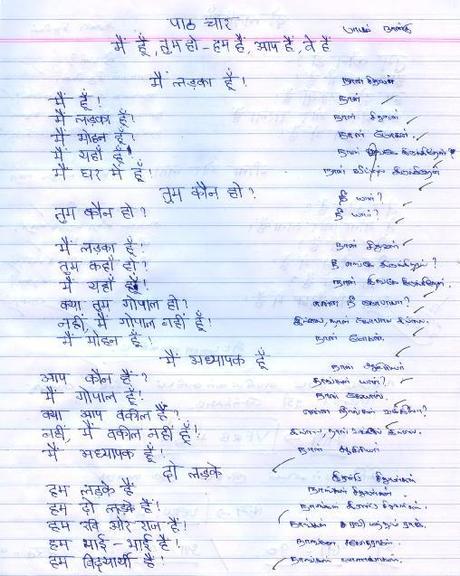 पाठ चार பாடம் நான்கு
मैं हूँ, तुम हो - हम हैं, आप हैं, वे हैं
मैं लड़का हूँ! நான் சிறுவன்
मैं हूँ! நான்
मैं लड़का हूँ! நான் சிறுவன்
मैं मोहन हूँ! நான் மோகன்.
मैं यहाँ हूँ! நான் இங்கே இருக்கிறேன்
मैं घर में हूँ! நான் வீட்டில் இருக்கிறேன்
तुम कौन हो? நீ யார்?
तुम कौन हो? நீ யார்?
मैं लड़का हूँ! நான் சிறுவன்
तुम कहाँ हो? நீ எங்கே இருக்கிறாய்?
मैं यहाँ हूँ! நான் இங்கே இருக்கிறேன்
क्या तुम गोपाल हो? என்ன நீ கோபாலா?
नहीं, मैं गोपाल नहीं हूँ! இல்லை, நான் கோபால் இல்லை.
मैं मोहन हूँ! நான் மோகன்.
मैं अध्यापक हूँ நான் ஆசிரியர்
आप कौन हैं? நீங்கள் யார்?
मैं गोपाल हूँ! நான் கோபால்.
क्या आप वकील हैं? என்ன நீங்கள் வக்கீலா?
नहीं, मैं वकील नहीं हूँ! இல்லை, நான் வக்கீல் இல்லை.
मैं अध्यापक हूँ! நான் ஆசிரியர்
दो लड़के இரண்டு சிறுவர்கள்
हम लड़के हैं நாங்கள் சிறுவர்கள்.
हम दो लड़के हैं! நாங்கள் இரண்டு சிறுவர்கள்.
हम रवि और राज हैं! நாங்கள் ரவி மற்றும் ராஜ்.
हम भाई - भाई हैं! நாங்கள்
हम विद्यार्थी हैं! நாங்கள் மாணவர்கள்.